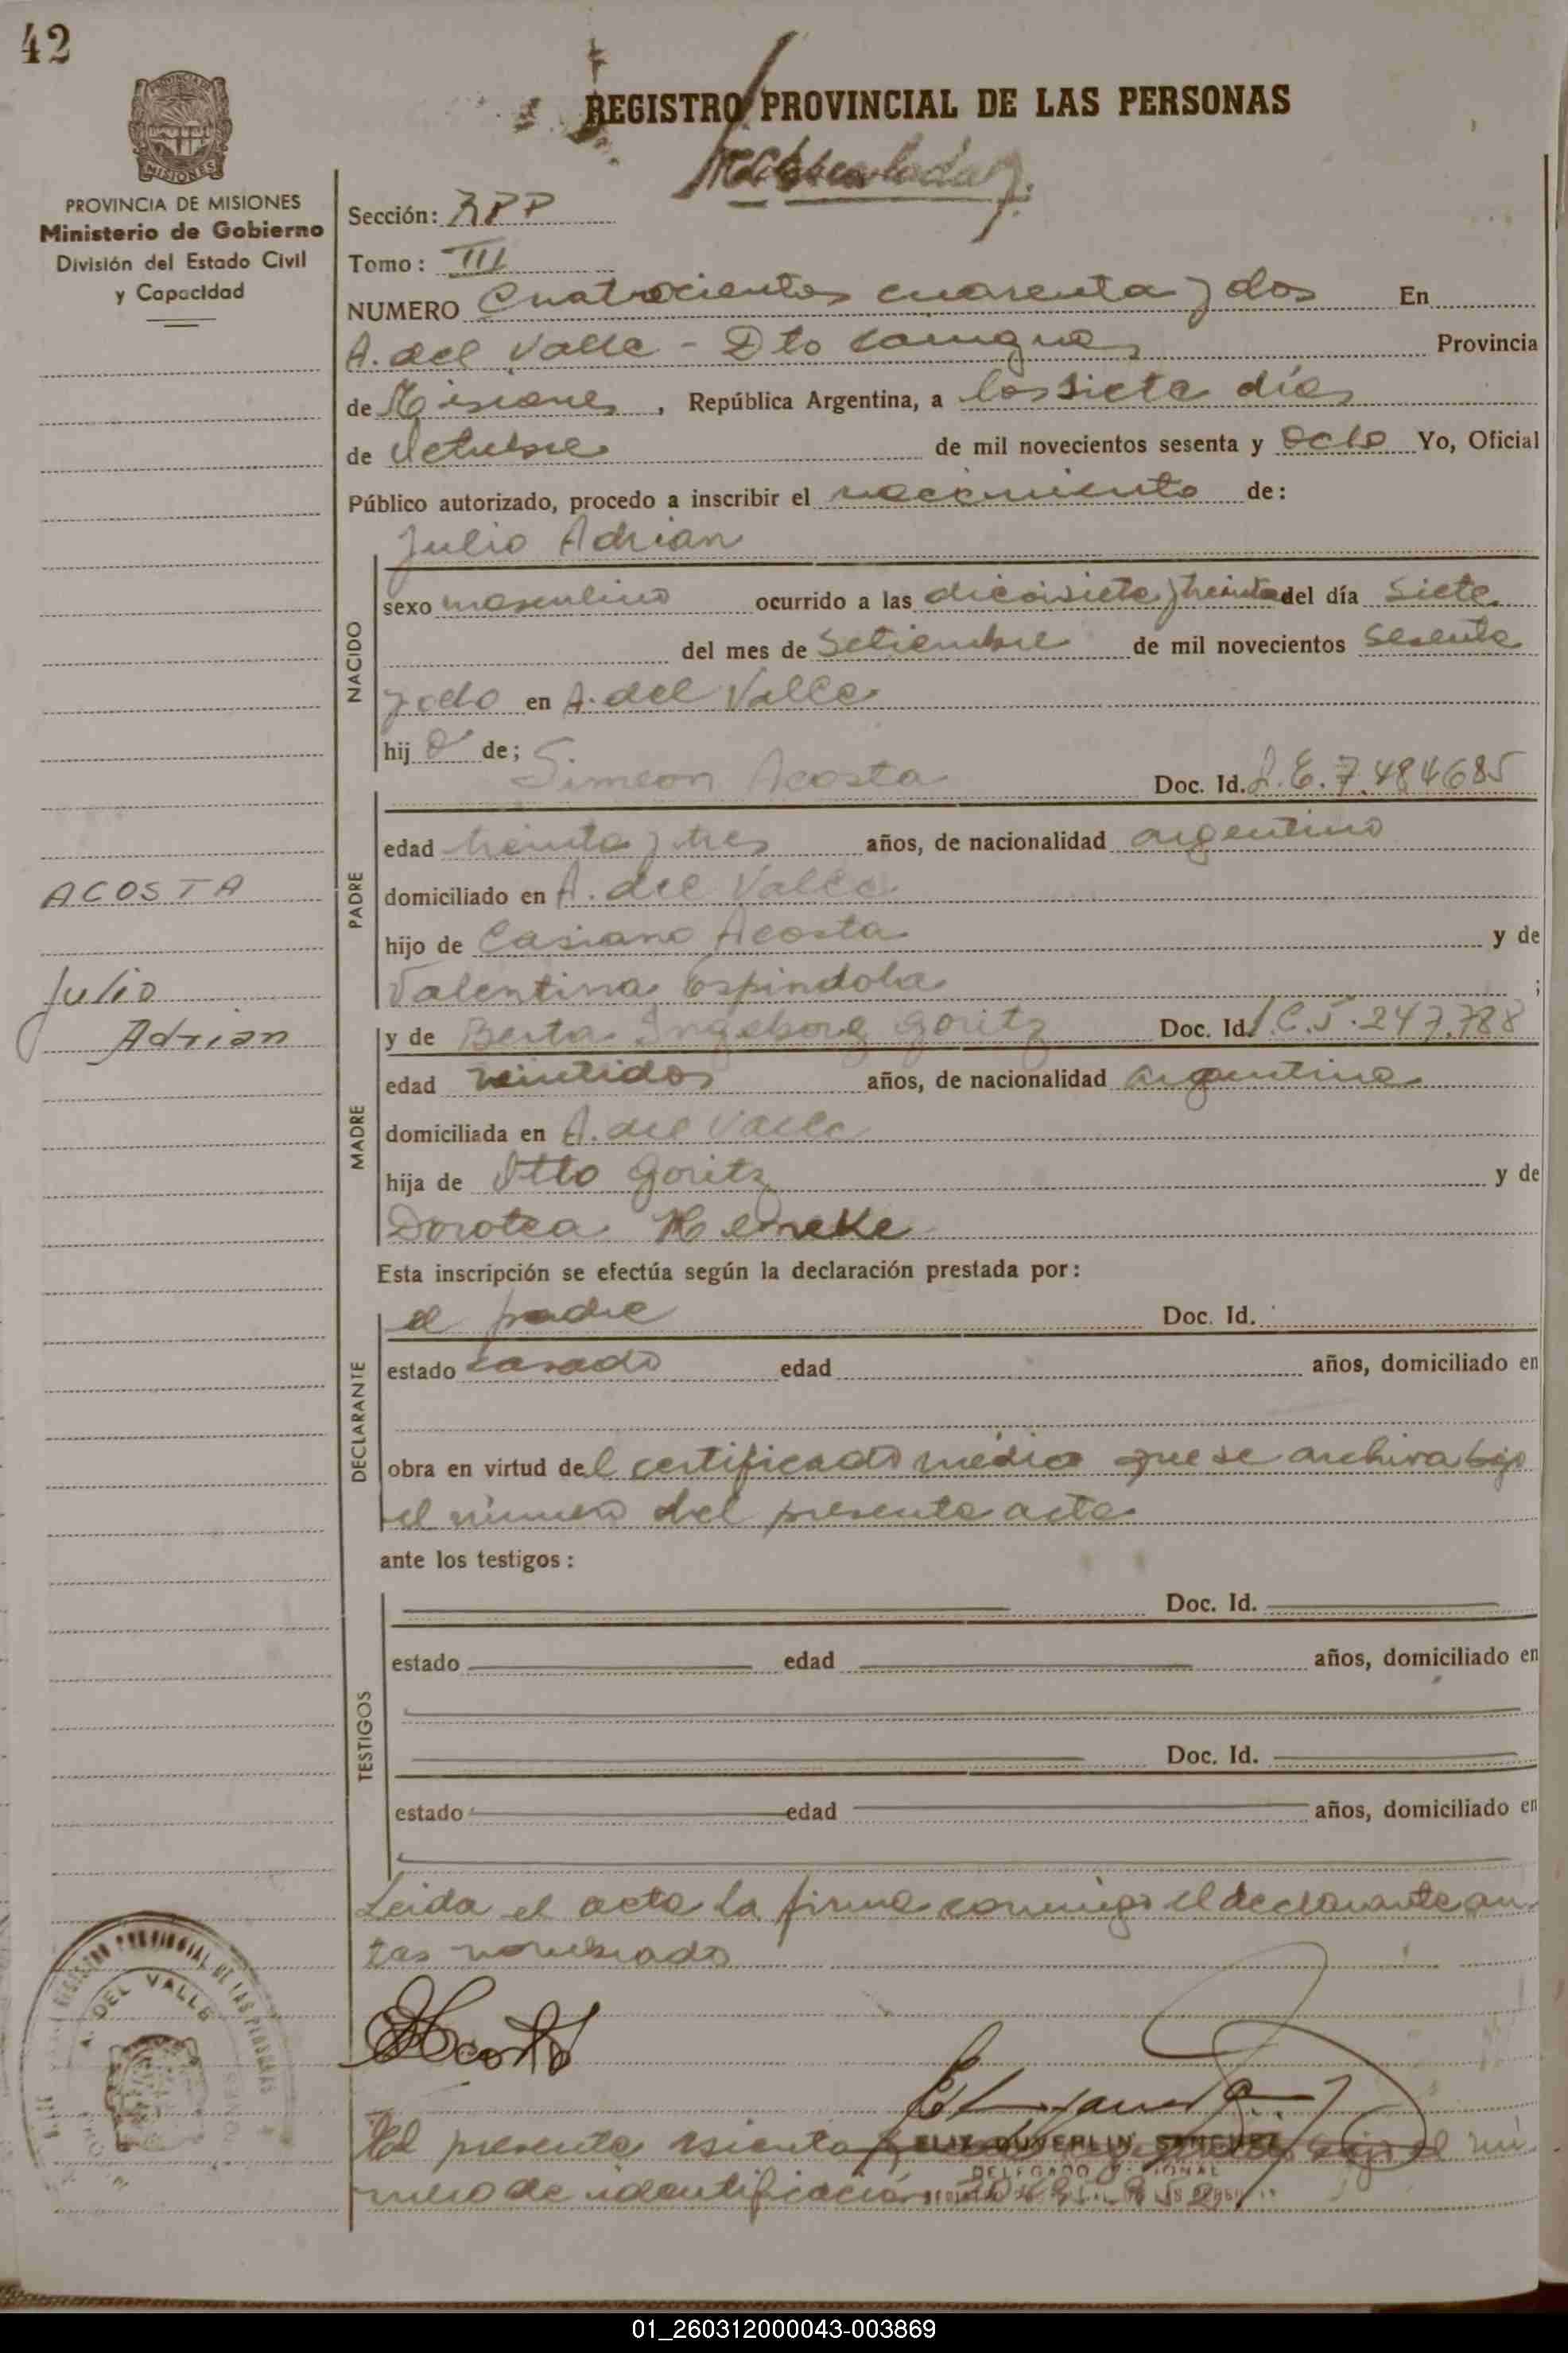 42
REGISTRO PROVINCIAL DE LAS PERSONAS
PROVINCIA DE MISIONES
Ministerio de Gobierno
División del Estado Civil
y Capacidad
Sección:
Tomo: III
NUMERO Cuatrocientos cuarenta y dos En
A. del Valle - Dto Cainguas Provincia
de Misiones, República Argentina, a los siete días
de Octubre de mil novecientos sesenta y ocho Yo, Oficial
Público autorizado, procedo a inscribir el nacimiento de:
Julio Adrian
NACIDO
sexo masculino ocurrido a las diecisiete y treinta del día siete
del mes de Setiembre de mil novecientos sesenta
y ocho en A. del Valle
hijo de;
Simeon Acosta Doc. Id. L.E. 7.484685
PADRE
edad treinta y tres años, de nacionalidad argentino
domiciliado en A. del Valle
hijo de Casiano Acosta y de
Valentina Espindola ;
ACOSTA
Julio
Adrian
y de Berta Ingeborg Goritz Doc. Id. C.I. 247.788
MADRE
edad veintidos años, de nacionalidad argentina
domiciliada en A. del Valle
hija de Otto Goritz y de
Dorotea Heneke
Esta inscripción se efectúa según la declaración prestada por:
el padre Doc. Id.
DECLARANTE
estado casado edad años, domiciliado en
obra en virtud del certificado médico que se archiva bajo
el número del presente acta
ante los testigos:
TESTIGOS
Doc. Id.
estado edad años, domiciliado en
Doc. Id.
estado edad años, domiciliado en
Leida el acta la firma conmigo el declarante an
tes nombrado
Acosta
El presente asiento bajo el nú
mero de identificación
FELIX DUVERLIN SANCHEZ
REGISTRO PROVINCIAL DE LAS PERSONAS
A. DEL VALLE
01_260312000043-003869